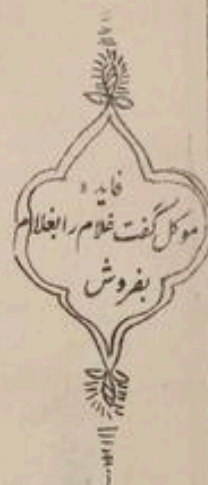 فایده
موکل گفت غلام را بغلام
بفروش